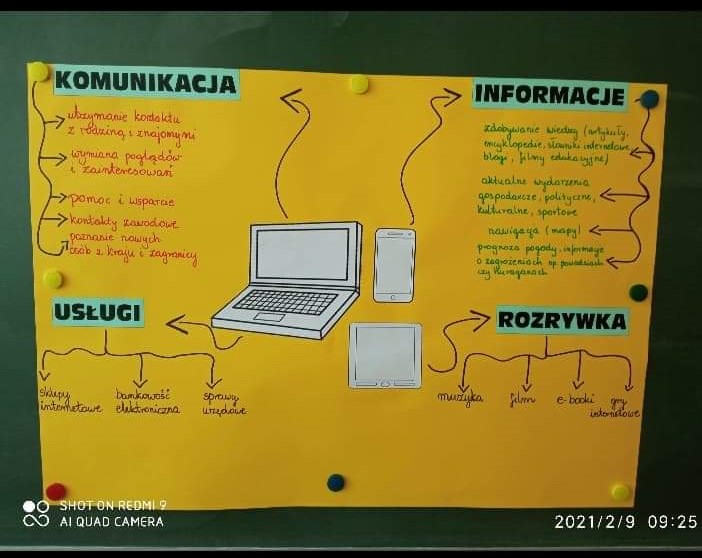 KOMUNIKACJA
utrzymanie kontaktu
z rodziną i znajomymi
wymiana poglądów
i zainteresowań
pomoc i wsparcie
kontakty zawodowe
poznanie nowych
osób z kraju i zagranicy
INFORMACJE
zdobywanie wiedzy (artykuły,
encyklopedie, słowniki internetowe,
blogi, filmy edukacyjne)
aktualne wydarzenia
gospodarcze, polityczne,
kulturalne, sportowe
nawigacja (mapy)
prognoza pogody, informacje
o zagrożeniach np. powodziach
czy huraganach
USŁUGI
sklepy
internetowe
bankowość
elektroniczna
sprawy
urzędowe
ROZRYWKA
muzyka
film
e-booki
gry
internetowe
SHOT ON REDMI 9
AI QUAD CAMERA
2021/2/9 09:25